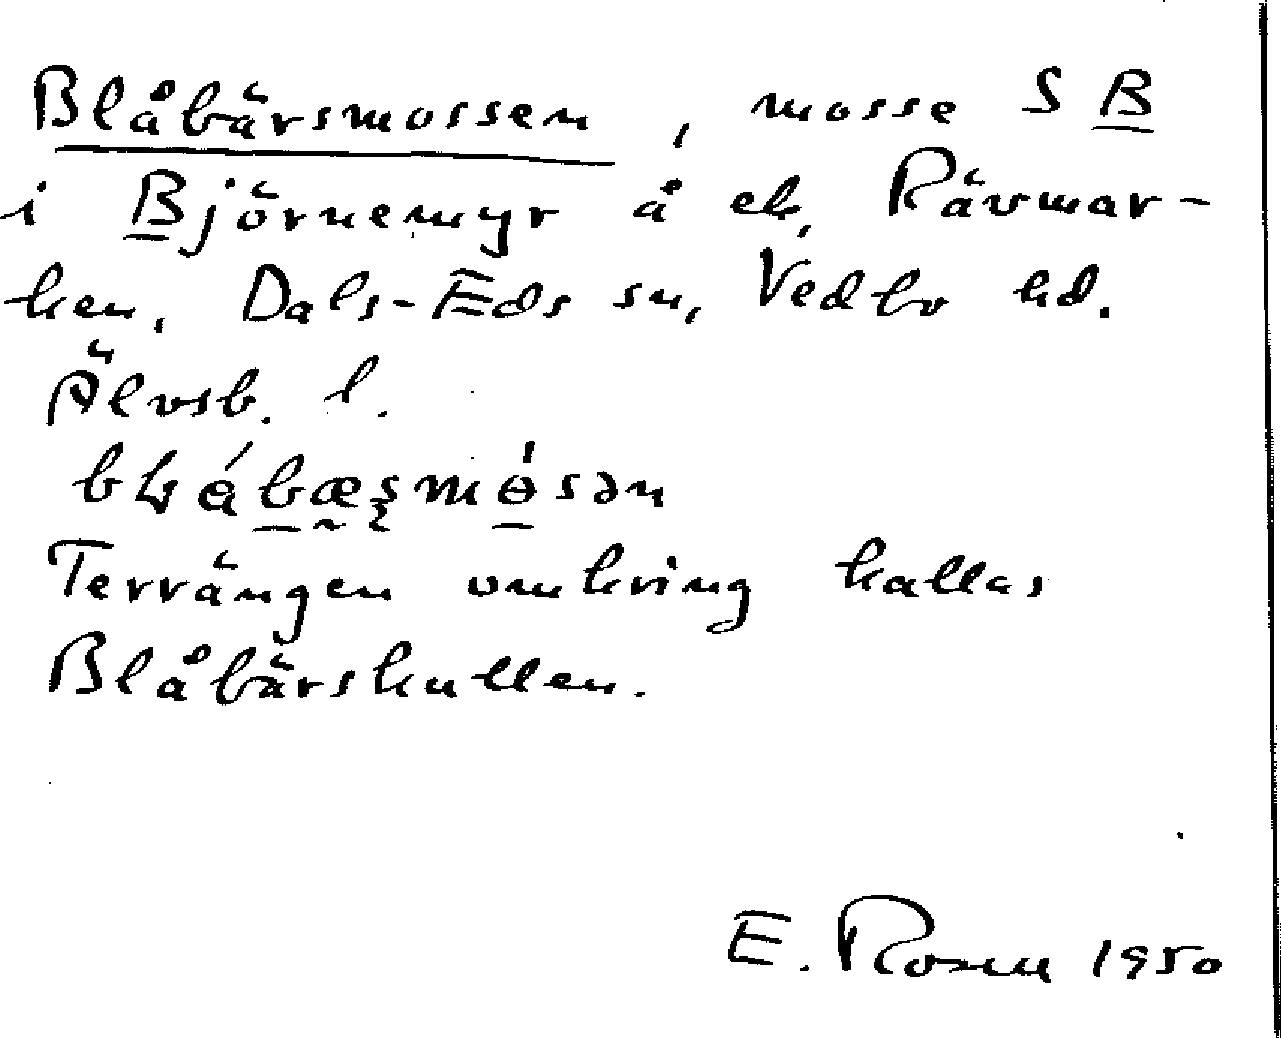 Blåbärsmossen, mosse S B
i Björnemyr å ek. Rävmar-
ken, Dals-Eds sn, Vedbo hd.
Älvsb. l.
Terrängen omkring kallas
Blåbärskullen.
E. Rosen 1950